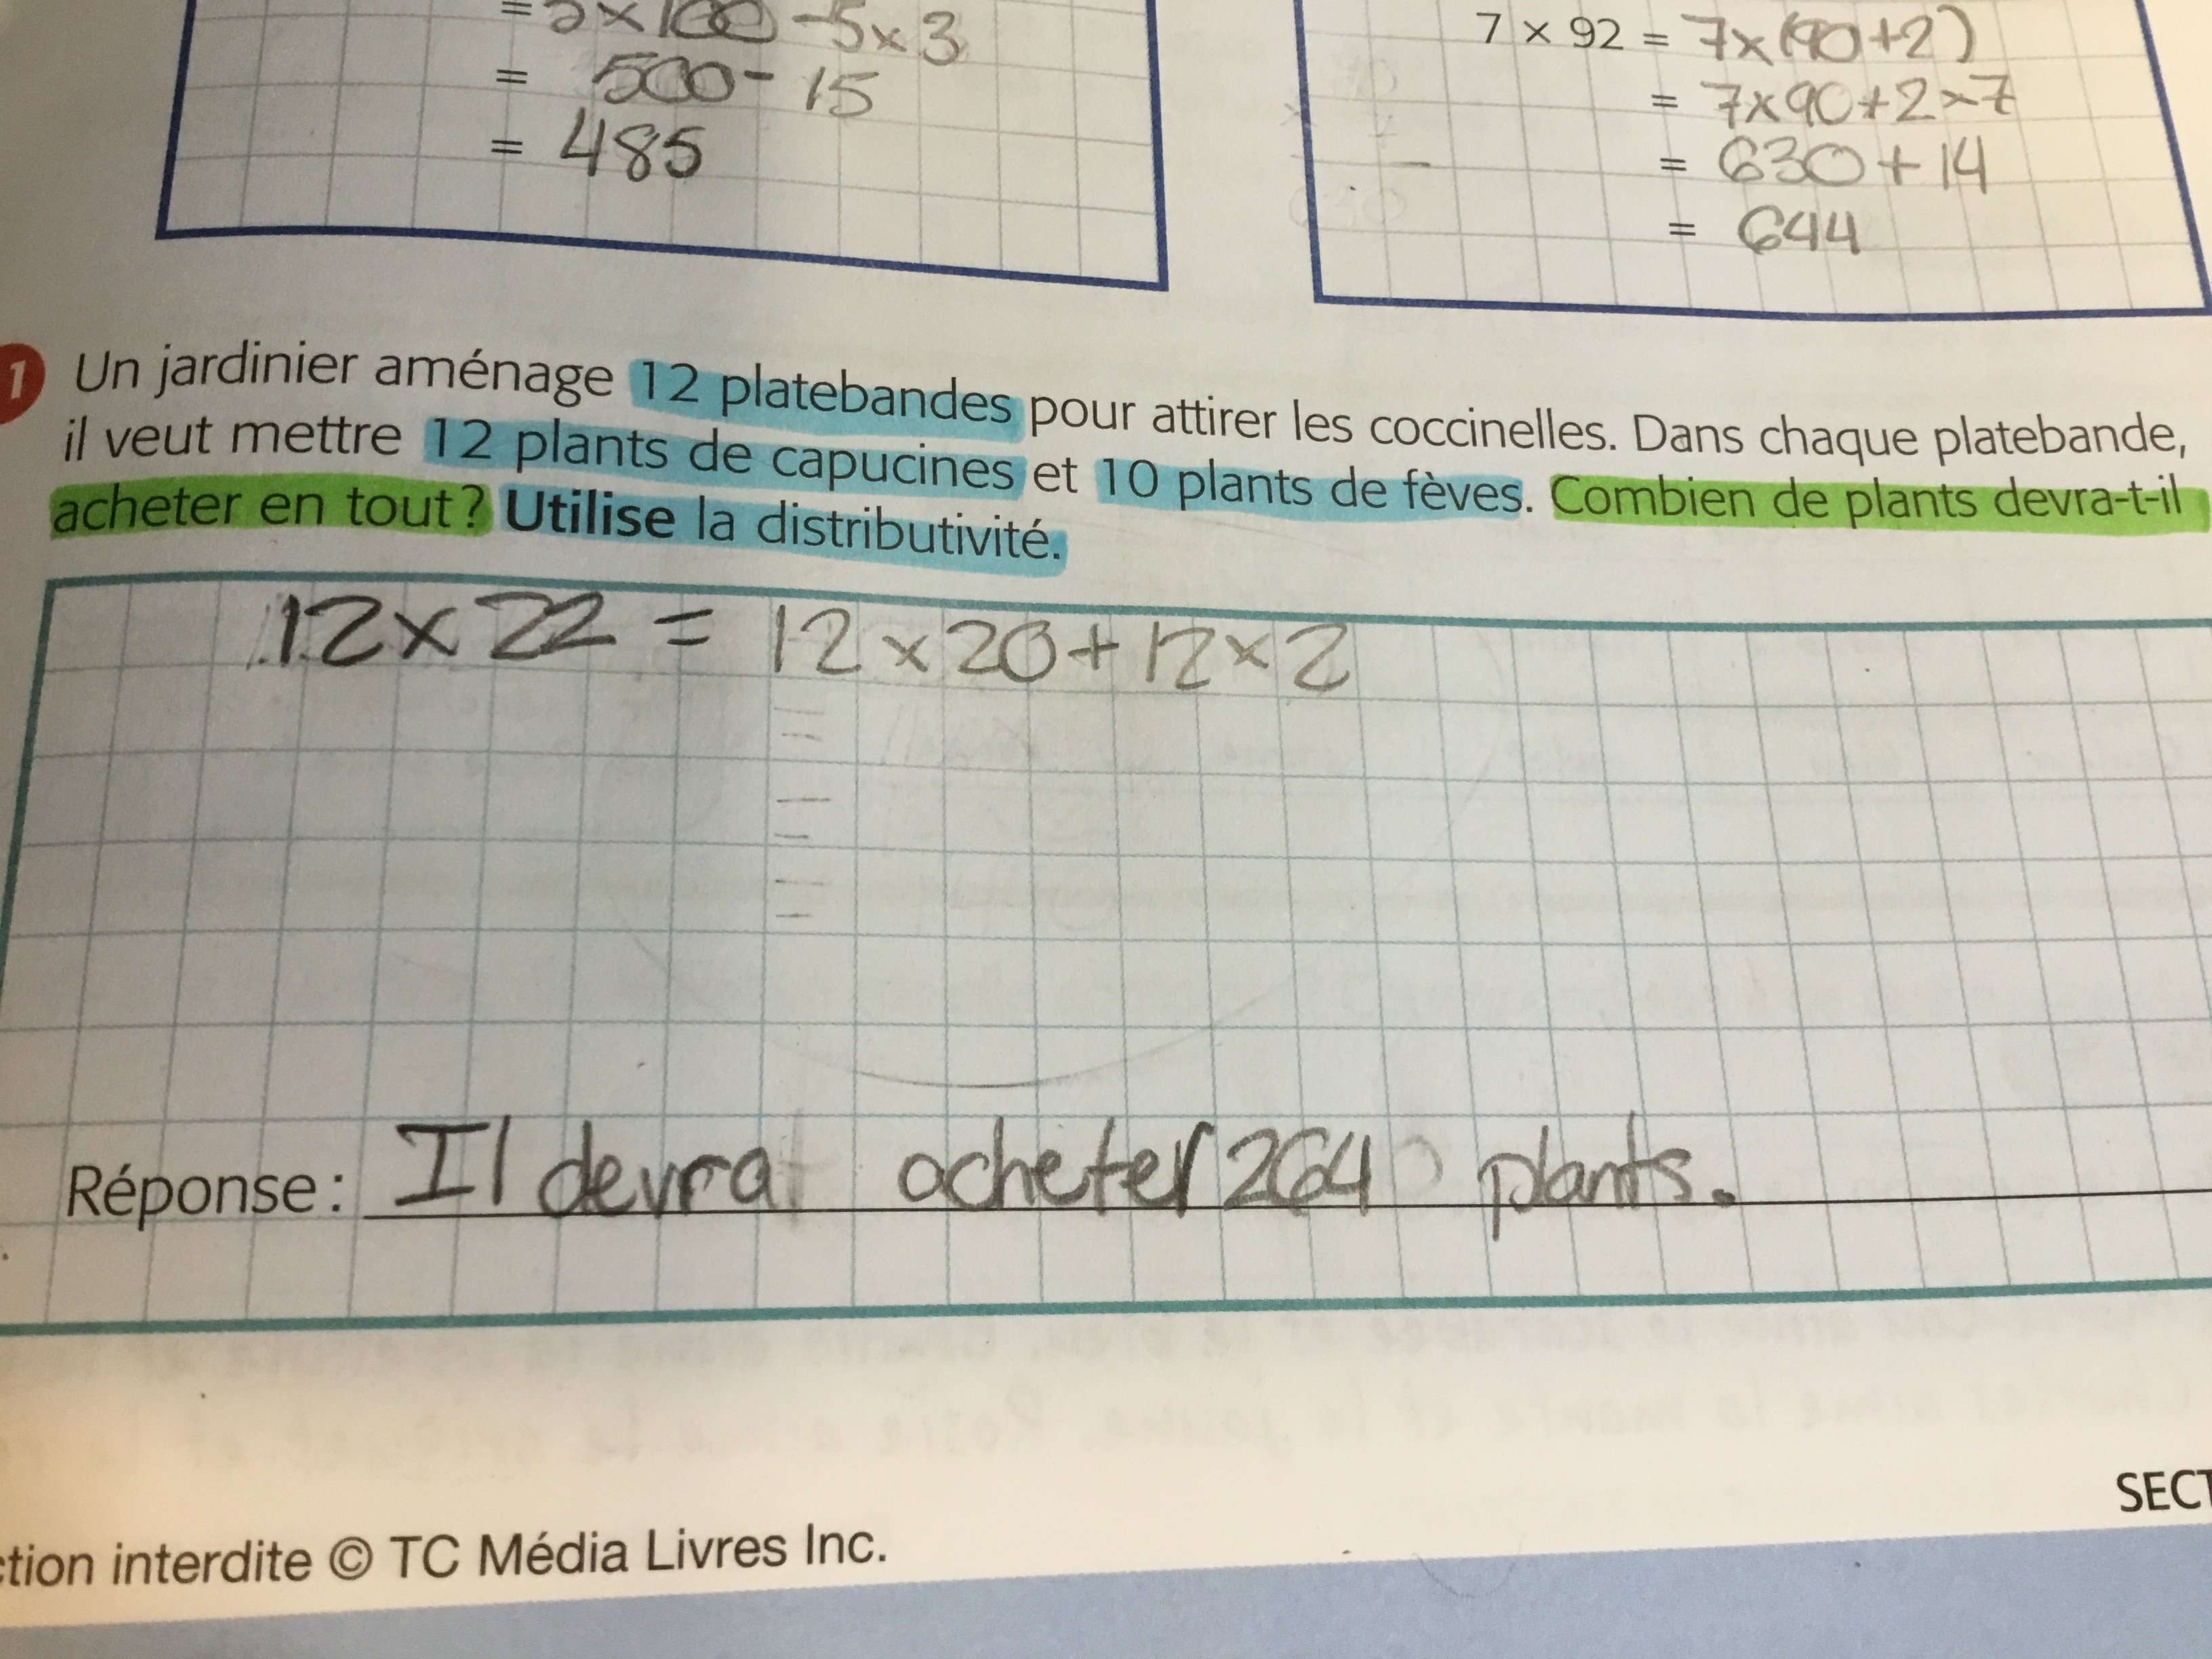 = 5 x 100 - 5 x 3
= 500 - 15
= 485
7 × 92 = 7x(90+2)
= 7x90+2x7
= 630+14
= 644
1 Un jardinier aménage 12 platebandes pour attirer les coccinelles. Dans chaque platebande,
il veut mettre 12 plants de capucines et 10 plants de fèves. Combien de plants devra-t-il
acheter en tout? Utilise la distributivité.
12 x 22 = 12 x 20 + 12 x 2
=
=
=
Réponse : Il devra acheter 264 plants.
SECT
ction interdite © TC Média Livres Inc.